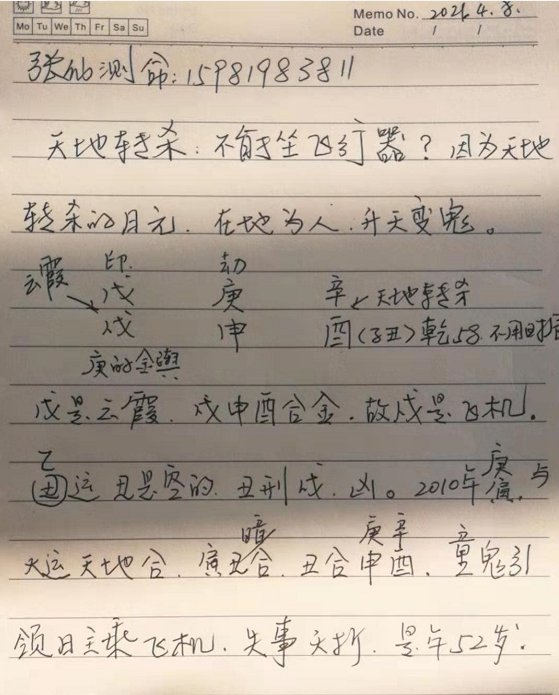 Memo No. 2021.4.8.
Mo Tu We Th Fr Sa Su
Date / /
张灿测命:15981983811
天地转杀:不能坐飞行器?因为天地
转杀的日元.在地为人.升天变鬼。
印 劫
云霞 戊 庚 辛 天地转杀
戌 申 酉(子丑)乾58.不用时括
庚的金舆
戌是云霞.戌申酉合金.故戌是飞机。
乙
丑运丑是空的.丑刑戌.凶。2010年庚寅.与
大运天地合.寅丑暗合.丑合庚申辛酉.童鬼引
领日主乘飞机.失事夭折.是年52岁.